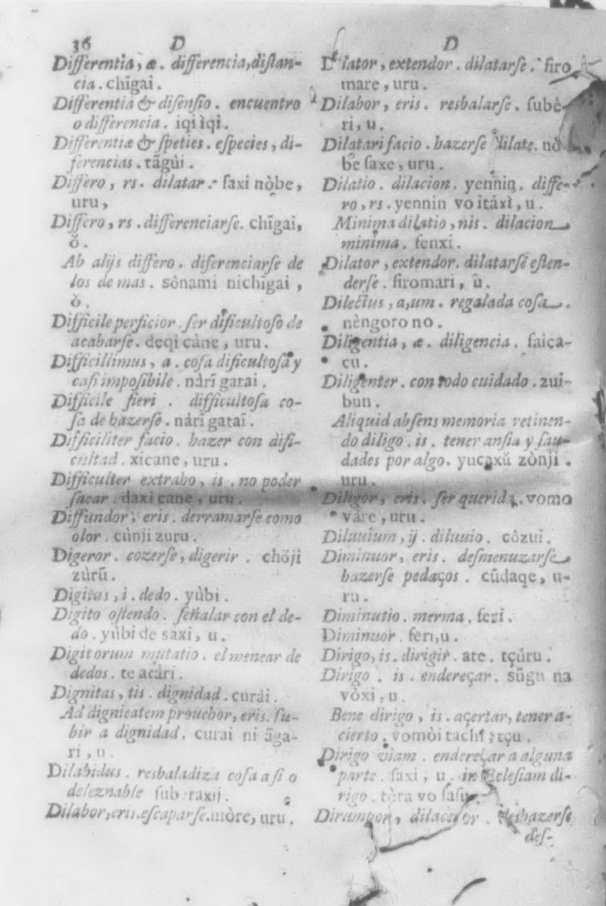 36 D
Differentia, æ. differencia, distan-
cia. chīgai.
Differentia & disensio. encuentro
o differencia. iqi iqi.
Differentiæ & speties. especies, di-
ferencias. tāgùi.
Differo, rs. dilatar. saxi nòbe,
uru,
Differo, rs. differenciarse. chīgai,
ŏ.
Ab alijs differo. diferenciarse de
los de mas. sònami nichigai,
ò.
Difficile perficior. ser dificultoso de
acabarse. deqi càne, uru.
Difficillimus, a. cosa dificultosa y
casi imposibile. nàrī gatai.
Difficile fieri. difficultosa co-
sa de hazerse. nàrī gatai.
Difficiliter facio. hazer con difi-
cultad. xicane, uru.
Difficulter extraho, is. no poder
sacar. daxi cane, uru.
Diffundor, eris. derramarse como
olor. cùnji zuru.
Digeror. cozerse, digerir. chŏji
zùrū.
Digitus, i. dedo. yùbi.
Digito ostendo. señalar con el de-
do. yùbi de saxi, u.
Digitorum mutatio. el menear de
dedos. te
Dignitas, tis. dignidad. curài.
Ad dignitatem prouehor, eris. su-
bir a dignidad. curai ni āga-
ri, u.
Dilabidus. resbaladiza cosa a si o
deleznable
Dilabor, eris. escaparse. mòre, uru.
D
Dilator, extendor. dilatarse. firo
mare, uru.
Dilabor, eris. resbalarse. subè-
ri, u.
Dilatari facio. hazerse dilate. nò
be saxe, uru.
Dilatio. dilacion. yennin. diffe-
ro, rs. yennin vo itàxi, u.
Minima dilatio, nis. dilacion
minima. fenxi.
Dilator, extendor. dilatarse esten-
derse. firomari, ù.
Dilectus, a, um. regalada cosa.
nèngoro no.
Diligentia, æ. diligencia. saica-
cu.
Diligenter. con todo cuidado. zui-
bun.
Aliquid absens memoria retinen-
do diligo. is. tener ansia y sau-
dades por algo. yucaxŭ zònji.
uru.
Diligor, eris. ser querido. vomo
vare, uru.
Diluuium, ij. diluuio. còzui.
Diminuor, eris. desmenuzarse
hazerse pedaços. cūdaqe, u-
ru.
Diminutio. merma. feri.
Diminuor. feri, u.
Dirigo, is. dirigir. ate. tçúru.
Dirigo. is. endereçar. sūgu na
vòxi, u.
Bene dirigo, is. açertar, tener a-
cierto. vomòi
Dirigo viam. endereçar a alguna
parte. saxi, u. in Ecclesiam di-
rigo. tèra vo
Dirumpor, deshazerse
des-